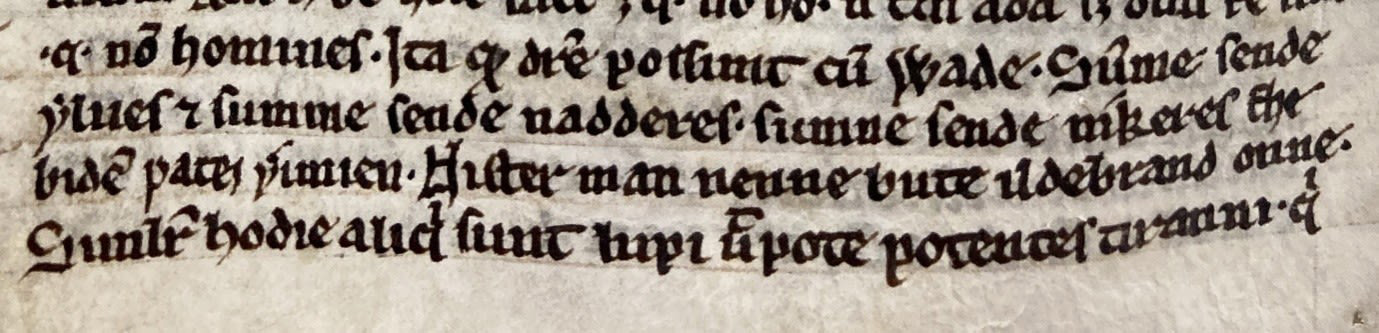 .q. nō homines. Ita ꝙ dicˀe possunt cū Wade. Sūme sende
ẏlues ⁊ summe sende nadderes. sumne sende nikeres the
bidē pateȝ ẏimien. Nister man nenne bute ildebrand onne.
Similr̄ hodie aliqͥ sunt lupi ūpote potentes tiranni. qͥ